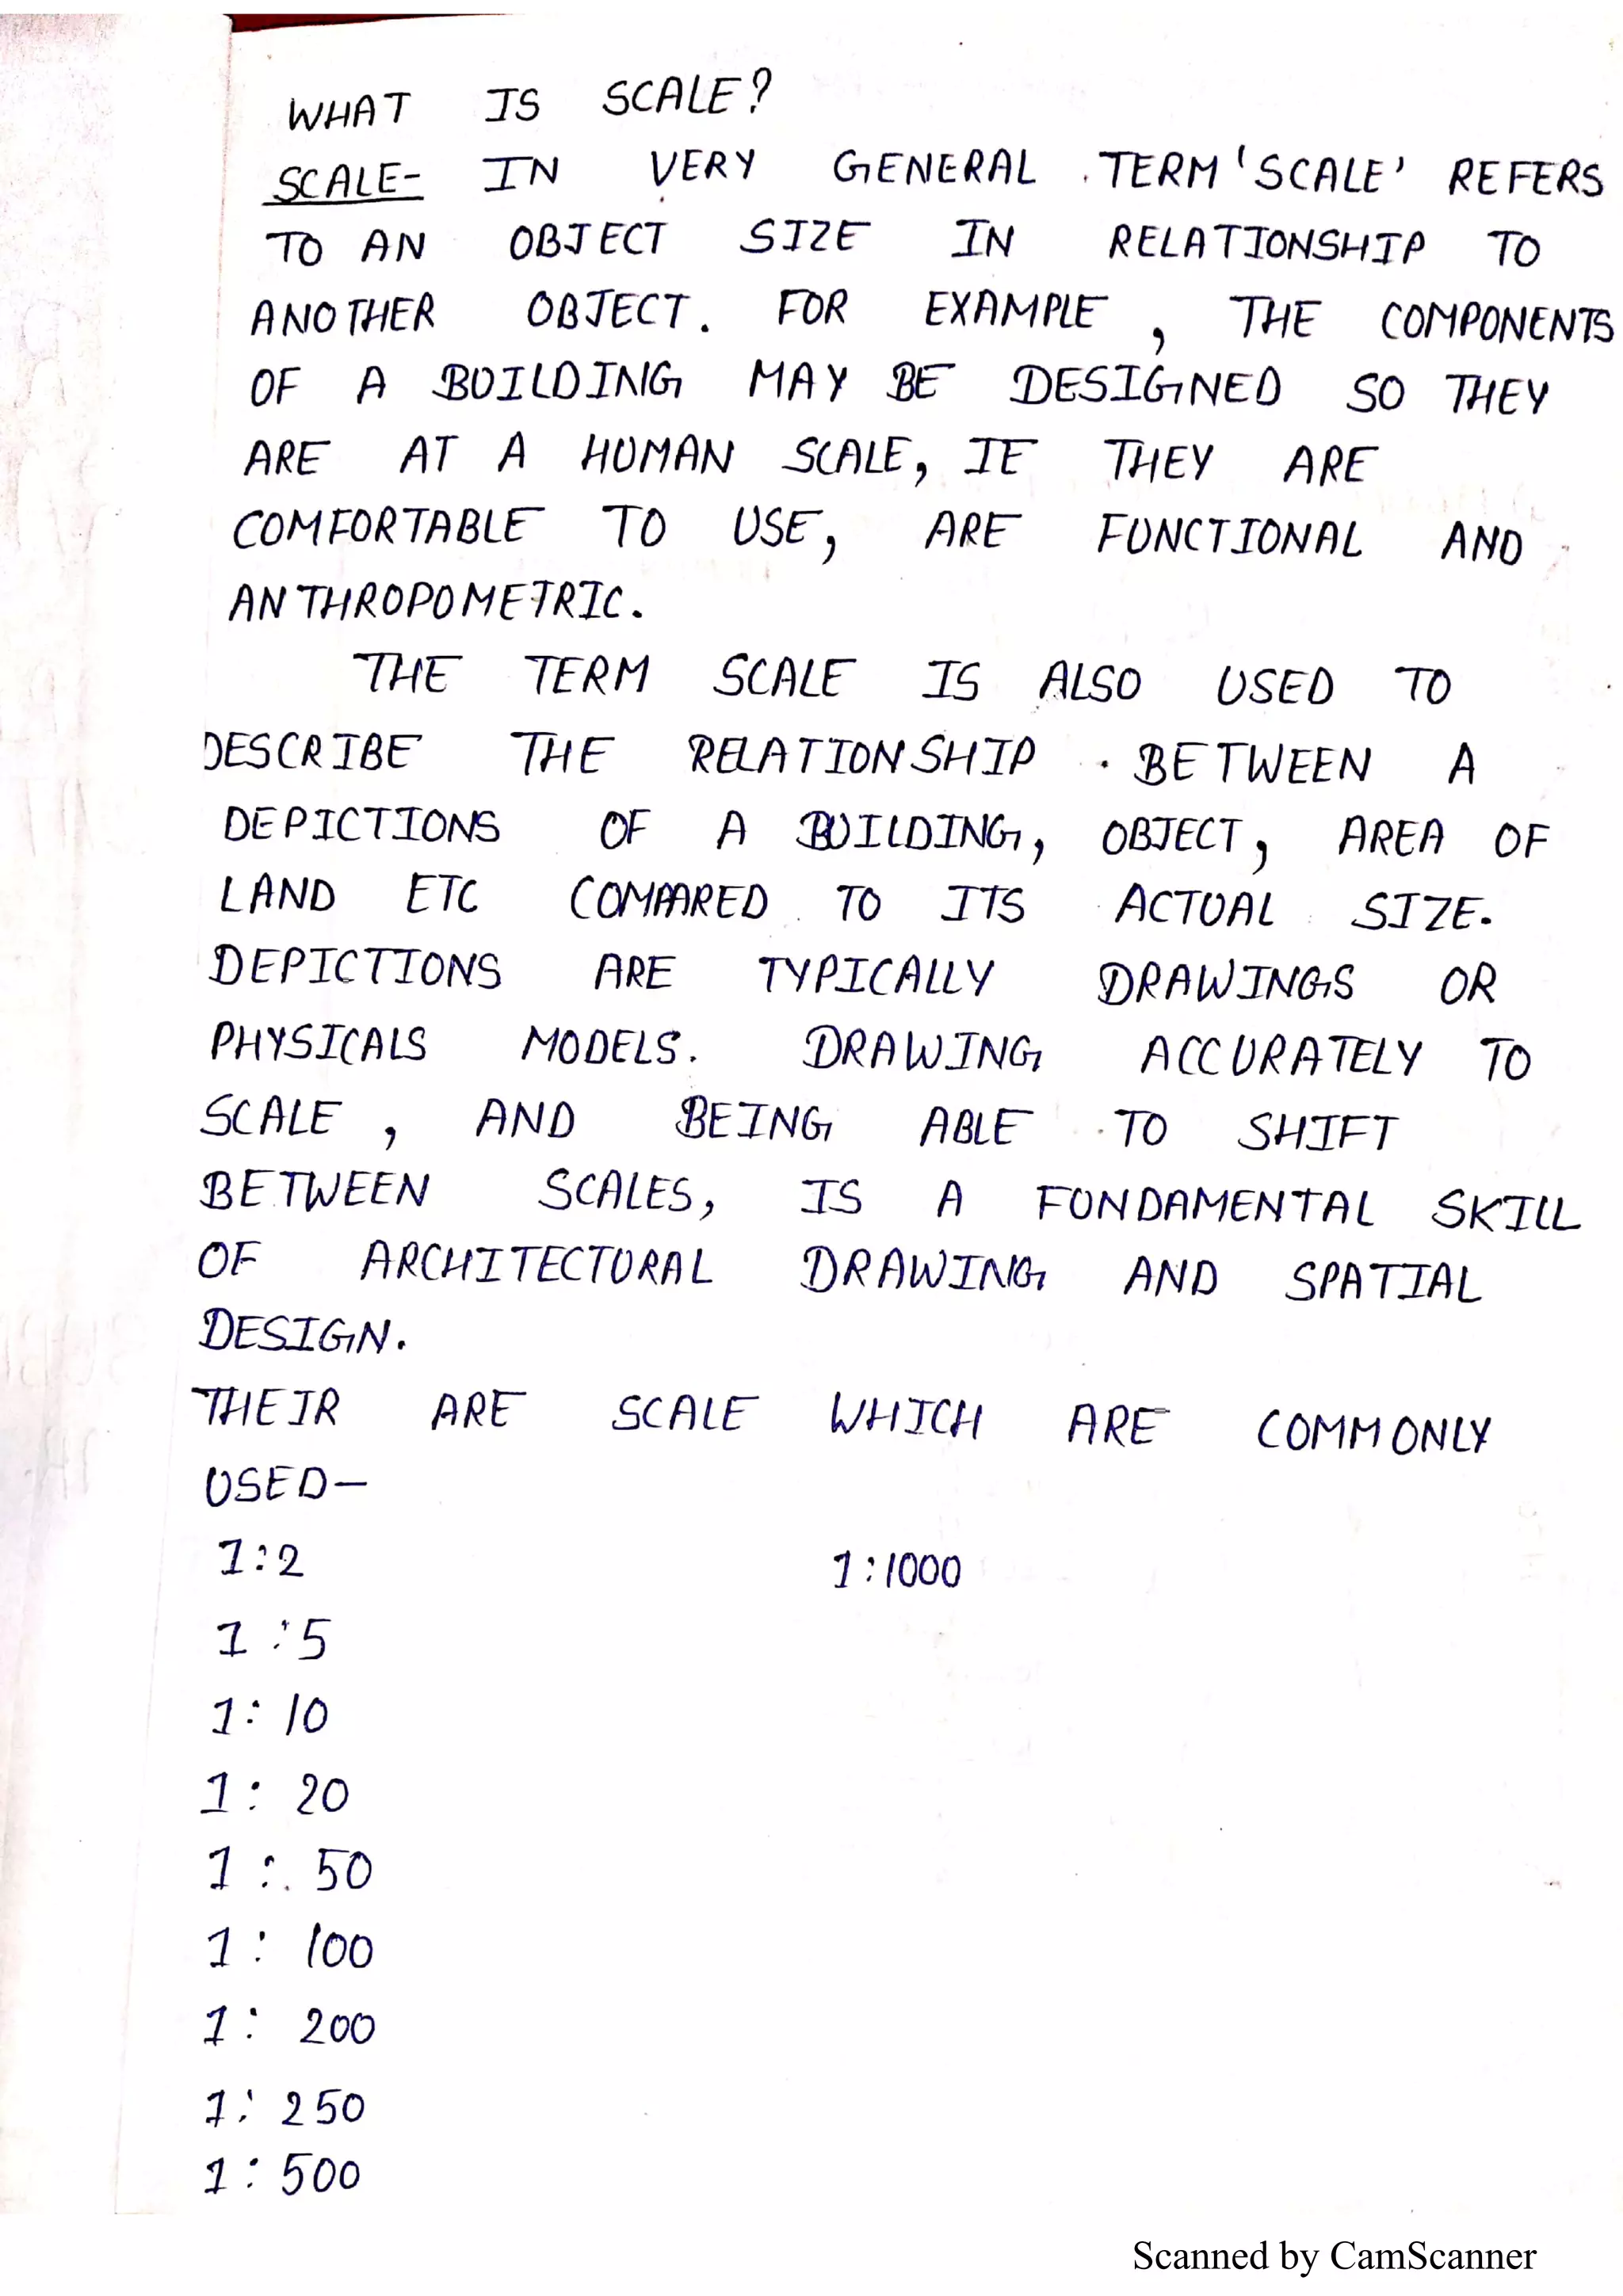 WHAT IS SCALE?
SCALE- IN VERY GENERAL TERM 'SCALE' REFERS
TO AN OBJECT SIZE IN RELATIONSHIP TO
ANOTHER OBJECT. FOR EXAMPLE, THE COMPONENTS
OF A BUILDING MAY BE DESIGNED SO THEY
ARE AT A HUMAN SCALE, IE THEY ARE
COMFORTABLE TO USE, ARE FUNCTIONAL AND
ANTHROPOMETRIC.
THE TERM SCALE IS ALSO USED TO
DESCRIBE THE RELATIONSHIP BETWEEN A
DEPICTIONS OF A BUILDING, OBJECT, AREA OF
LAND ETC COMPARED TO ITS ACTUAL SIZE.
DEPICTIONS ARE TYPICALLY DRAWINGS OR
PHYSICALS MODELS. DRAWING ACCURATELY TO
SCALE, AND BEING ABLE TO SHIFT
BETWEEN SCALES, IS A FUNDAMENTAL SKILL
OF ARCHITECTURAL DRAWING AND SPATIAL
DESIGN.
THEIR ARE SCALE WHICH ARE COMMONLY
USED-
1:2 1:1000
1:5
1:10
1:20
1:50
1:100
1:200
1:250
1:500
Scanned by CamScanner